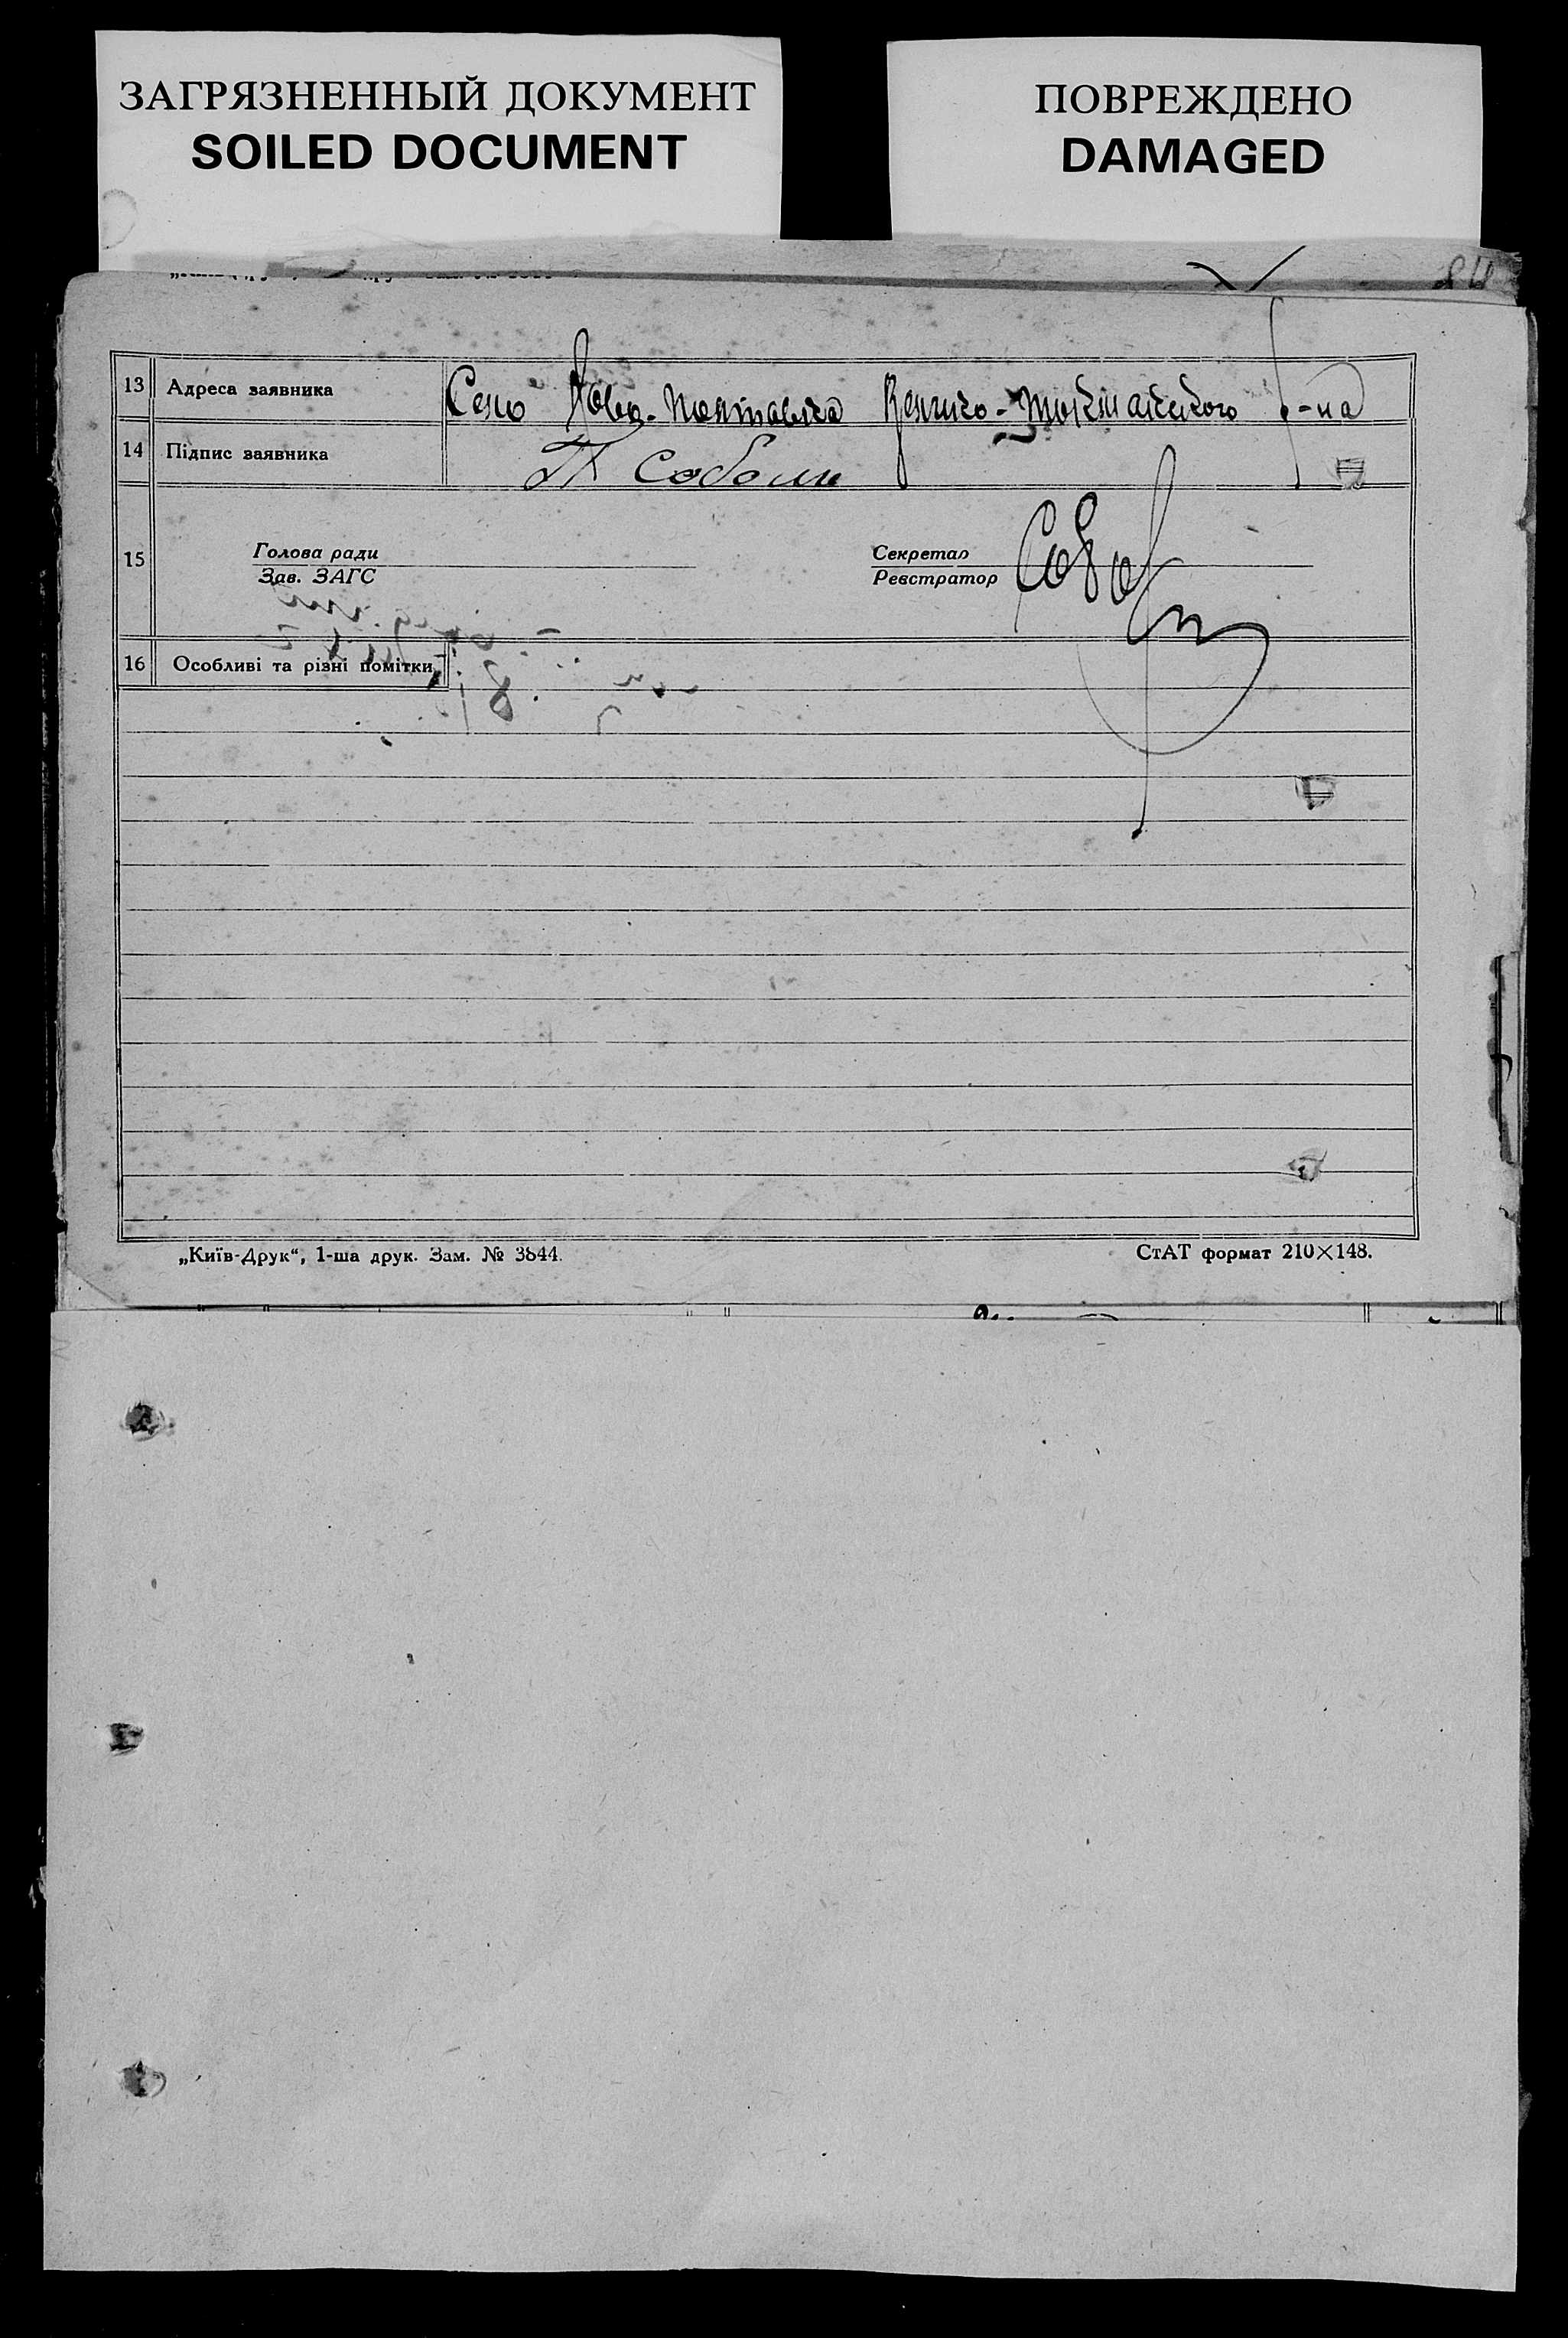 ЗАГРЯЗНЕННЫЙ ДОКУМЕНТ
SOILED DOCUMENT
ПОВРЕЖДЕНО
DAMAGED
13 Адреса заявника Село Ново-Полтавка Велико-Токмакского р-на
14 Підпис заявника П Соболь
15 Голова ради Секретар
Зав. ЗАГС Реєстратор
16 Особливі та різні помітки
„Київ-Друк“, 1-ша друк. Зам. № 3844. СтАТ формат 210×148.